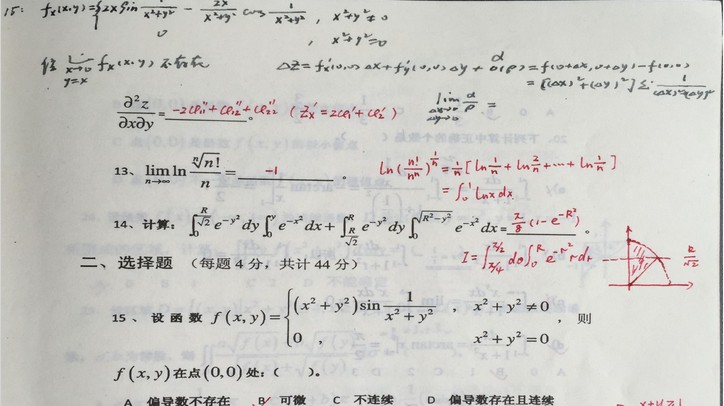 15: fx(x,y)={2x sin 1/(x²+y²) − 2x/(x²+y²) cos 1/(x²+y²) , x²+y²≠0
0 , x²+y²=0
但 lim x→0 y=x fx(x,y) 不存在 ΔZ=f'x(0,0)Δx+f'y(0,0)Δy+α o(ρ)=f(0+Δx,0+Δy)−f(0,0)
=[(Δx)²+(Δy)²]Sin 1/((Δx)²+(Δy)²)
lim Δx→0 Δy→0 α/ρ =
∂²z/∂x∂y = −2φ''11+φ''12+φ''22 。 ( Z'x=2φ'1+φ'2 )
13、lim n→∞ ln ⁿ√n!/n = −1 。 ln(n!/nⁿ)^(1/n)=1/n[ln 1/n+ln 2/n+⋯+ln n/n]
=∫₀¹ lnx dx
14、计算：∫₀^(R/√2) e^(−y²)dy∫₀^y e^(−x²)dx+∫_(R/√2)^R e^(−y²)dy∫₀^√(R²−y²) e^(−x²)dx= π/8(1−e^(−R²)) 。
I=∫_(π/4)^(π/2) dθ∫₀^R e^(−r²) r dr R/√2
二、选择题 （每题 4 分，共计 44 分）
15、设函数 f(x,y)={(x²+y²)sin 1/(x²+y²) ， x²+y²≠0
0 ， x²+y²=0 ，则
f(x,y)在点(0,0)处：( )。
A 偏导数不存在 B 可微 C 不连续 D 偏导数存在且连续